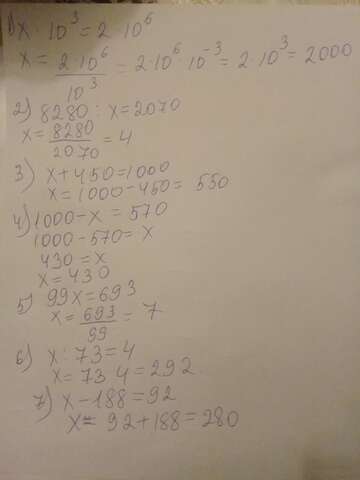 1) x · 10³ = 2 · 10⁶
x = 2·10⁶ / 10³ = 2·10⁶ · 10⁻³ = 2·10³ = 2000
2) 8280 : x = 2070
x = 8280 / 2070 = 4
3) x + 450 = 1000
x = 1000 - 450 = 550
4) 1000 - x = 570
1000 - 570 = x
430 = x
x = 430
5) 99x = 693
x = 693 / 99 = 7
6) x : 73 = 4
x = 73 · 4 = 292
7) x - 188 = 92
x = 92 + 188 = 280